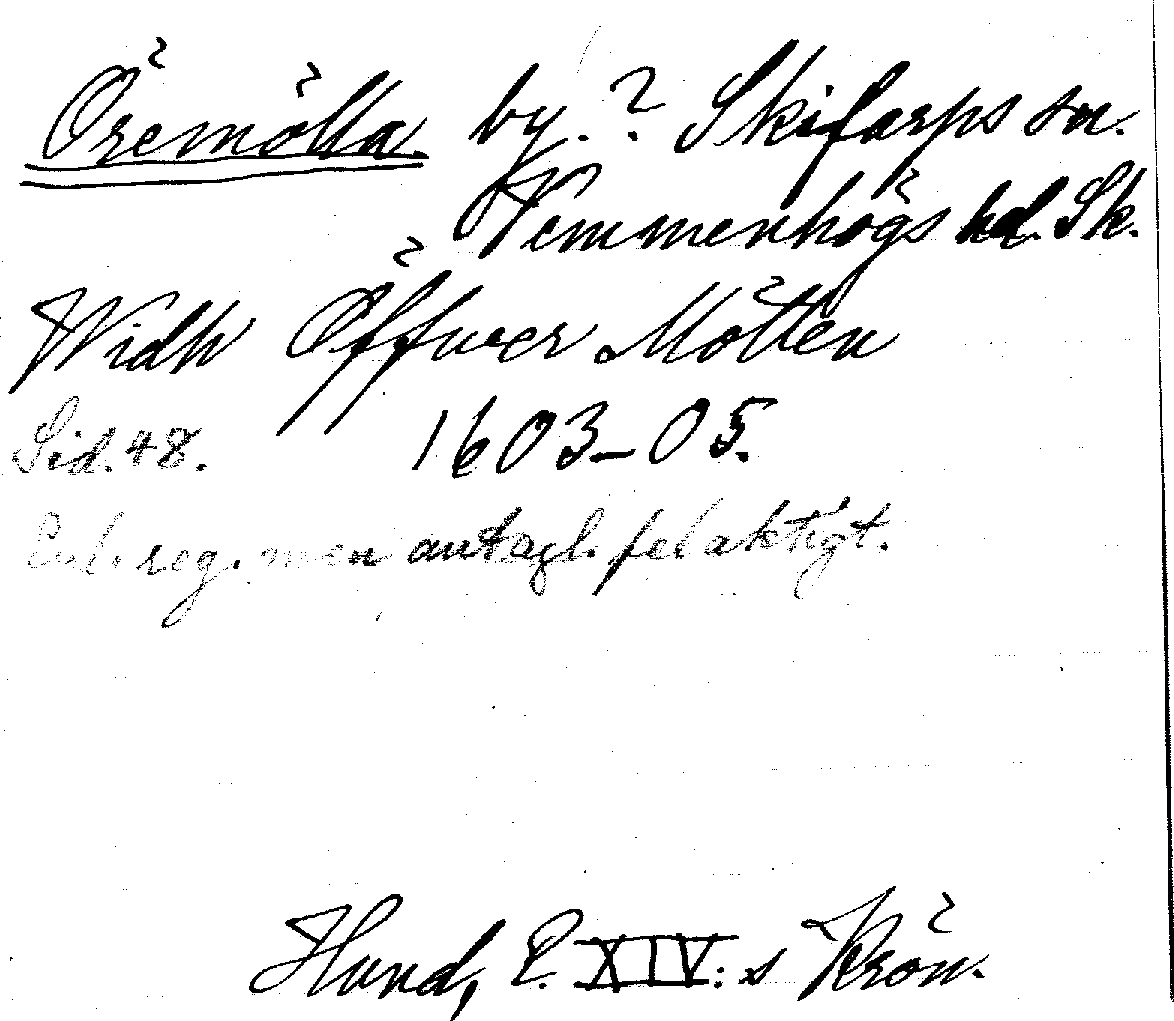 Öremölla. by. ? Skifarps sn.
Vemmenhögs hd. Sk.
Widh Öffwer Mötten
Sid. 48. 1603-05.
Enl. reg. men antagl. felaktigt.
Hund, E. XIV: s Krön.